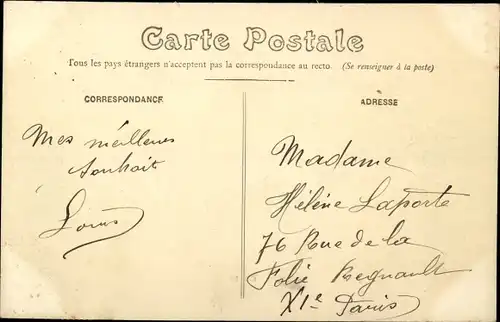 Carte Postale
Tous les pays étrangers n'acceptent pas la correspondance au recto. (Se renseigner à la poste)
CORRESPONDANCE
Mes meilleurs
souhait
Louis
ADRESSE
Madame
Hélène Laporte
76 Rue de la
Folie Regnault
XIe Paris